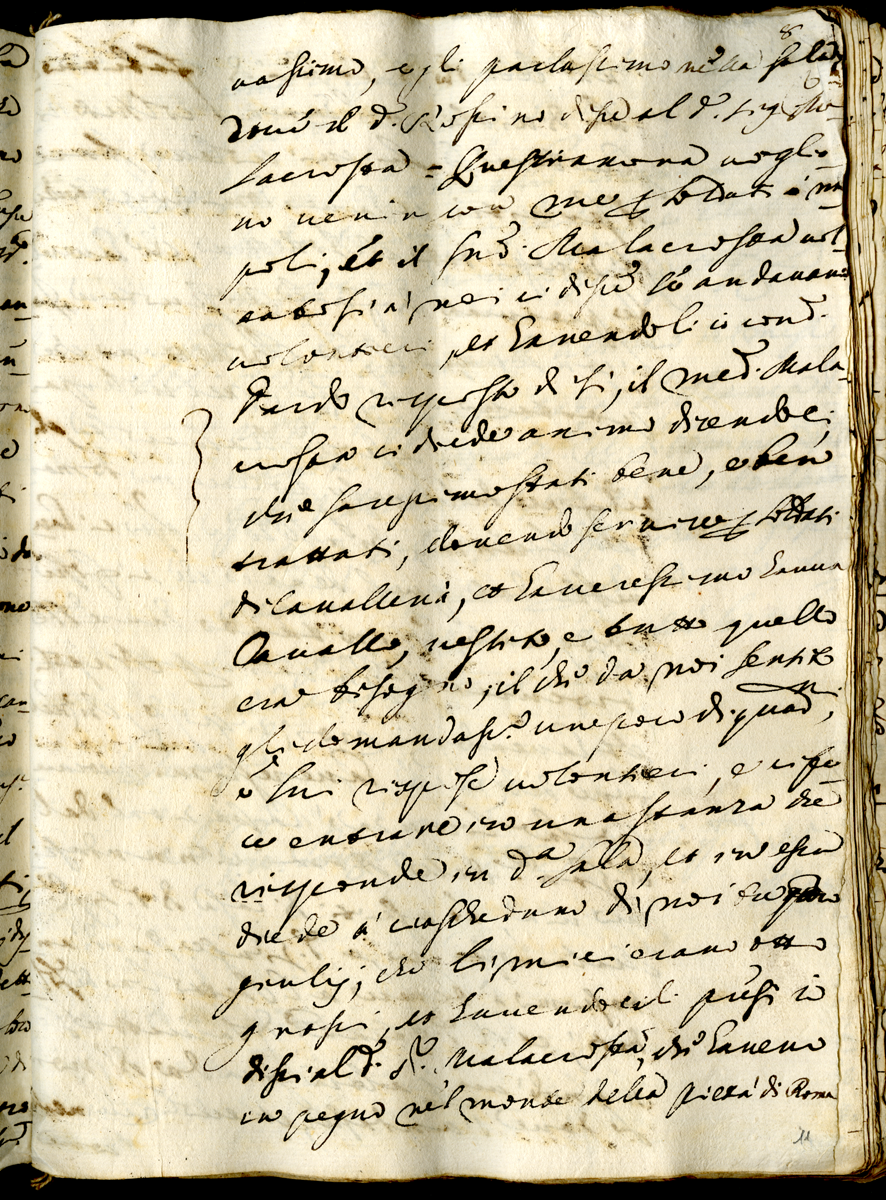 8
uassimo, e gli parlassimo nella sala
dove il d.º Rosino disse al d.º sig.r Ma-
lacrosta = Questi ancora voglio-
no venir con me p soldati à Na-
poli, et il sud.º Malacrosta vol-
tatosi à noi ci disse s'ò andavamo
volontieri, et havendoli io con d.º
Guido risposto di sì, il med.º Mala-
crosta ci diede animo dicendoci,
che saressimo stati bene, e ben
trattati, dovendo servire p soldati
di Cavalleria, et haveressimo hauuto
Cavallo, vestito, e tutto quello
era bisogno, il che da noi sentito
gli domandassi.º un poco di quadrini,
e lui rispose volontieri, e ci fe-
ce entrare in una stanza che
risponde in d.a sala, et in essa
diede à ciascheduno di noi
giulij, che li miei erano otto
grossi, et havendocili presi io
dissi al d.º S.r Malacrosta, che havevo
in pegno nel monte della pietà di Roma
11